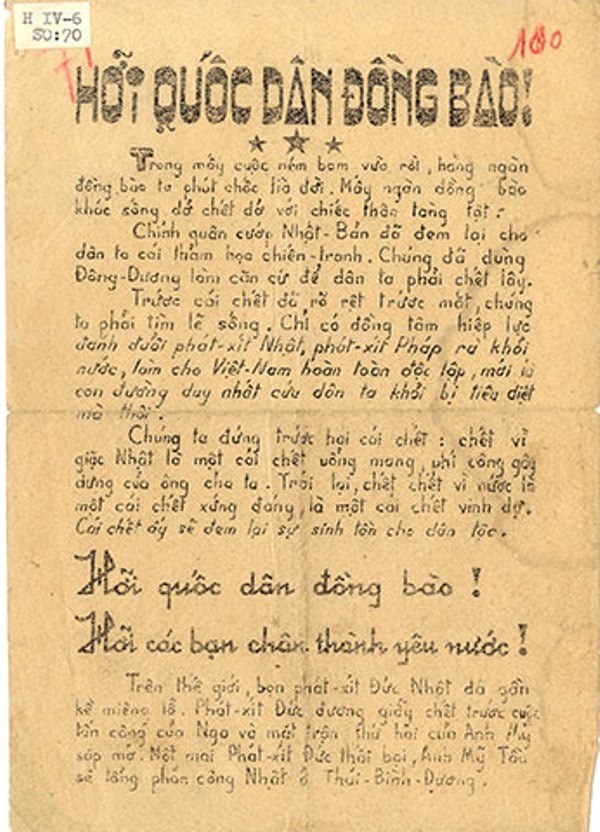 H IV-6
SO:70
100
HỠI QUỐC DÂN ĐỒNG BÀO!
Trong mấy cuộc ném bom vừa rồi, hàng ngàn
đồng bào ta phút chốc lìa đời. Mấy ngàn đồng bào
khác sống dở chết dở với chiếc thân tàng tật.
Chính quân cướp Nhật-Bản đã đem lại cho
dân ta cái thảm họa chiến-tranh. Chúng đã dùng
Đông-Dương làm căn cứ để dân ta phải chết lây.
Trước cái chết đã rõ rệt trước mắt, chúng
ta phải tìm lẽ sống. Chỉ có đồng tâm hiệp lực
đánh đuổi phát-xít Nhật, phát-xít Pháp ra khỏi
nước, làm cho Việt-Nam hoàn toàn độc lập, mới là
con đường duy nhất cứu dân ta khỏi bị tiêu diệt
mà thôi.
Chúng ta đứng trước hai cái chết: chết vì
giặc Nhật là một cái chết uổng mạng, phí công gây
dựng của ông cha ta. Trái lại, chết chết vì nước là
một cái chết xứng đáng, là một cái chết vinh dự.
Cái chết ấy sẽ đem lại sự sinh tồn cho dân tộc.
Hỡi quốc dân đồng bào!
Hỡi các bạn chân thành yêu nước!
Trên thế giới, bọn phát-xít Đức Nhật đã gần
kề miệng lỗ. Phát-xít Đức đương giẫy chết trước cuộc
tấn công của Nga và mặt trận thứ hai của Anh Mỹ
sắp mở. Một mai Phát-xít Đức thất bại, Anh Mỹ Tầu
sẽ tổng phản công Nhật ở Thái-Bình-Dương.